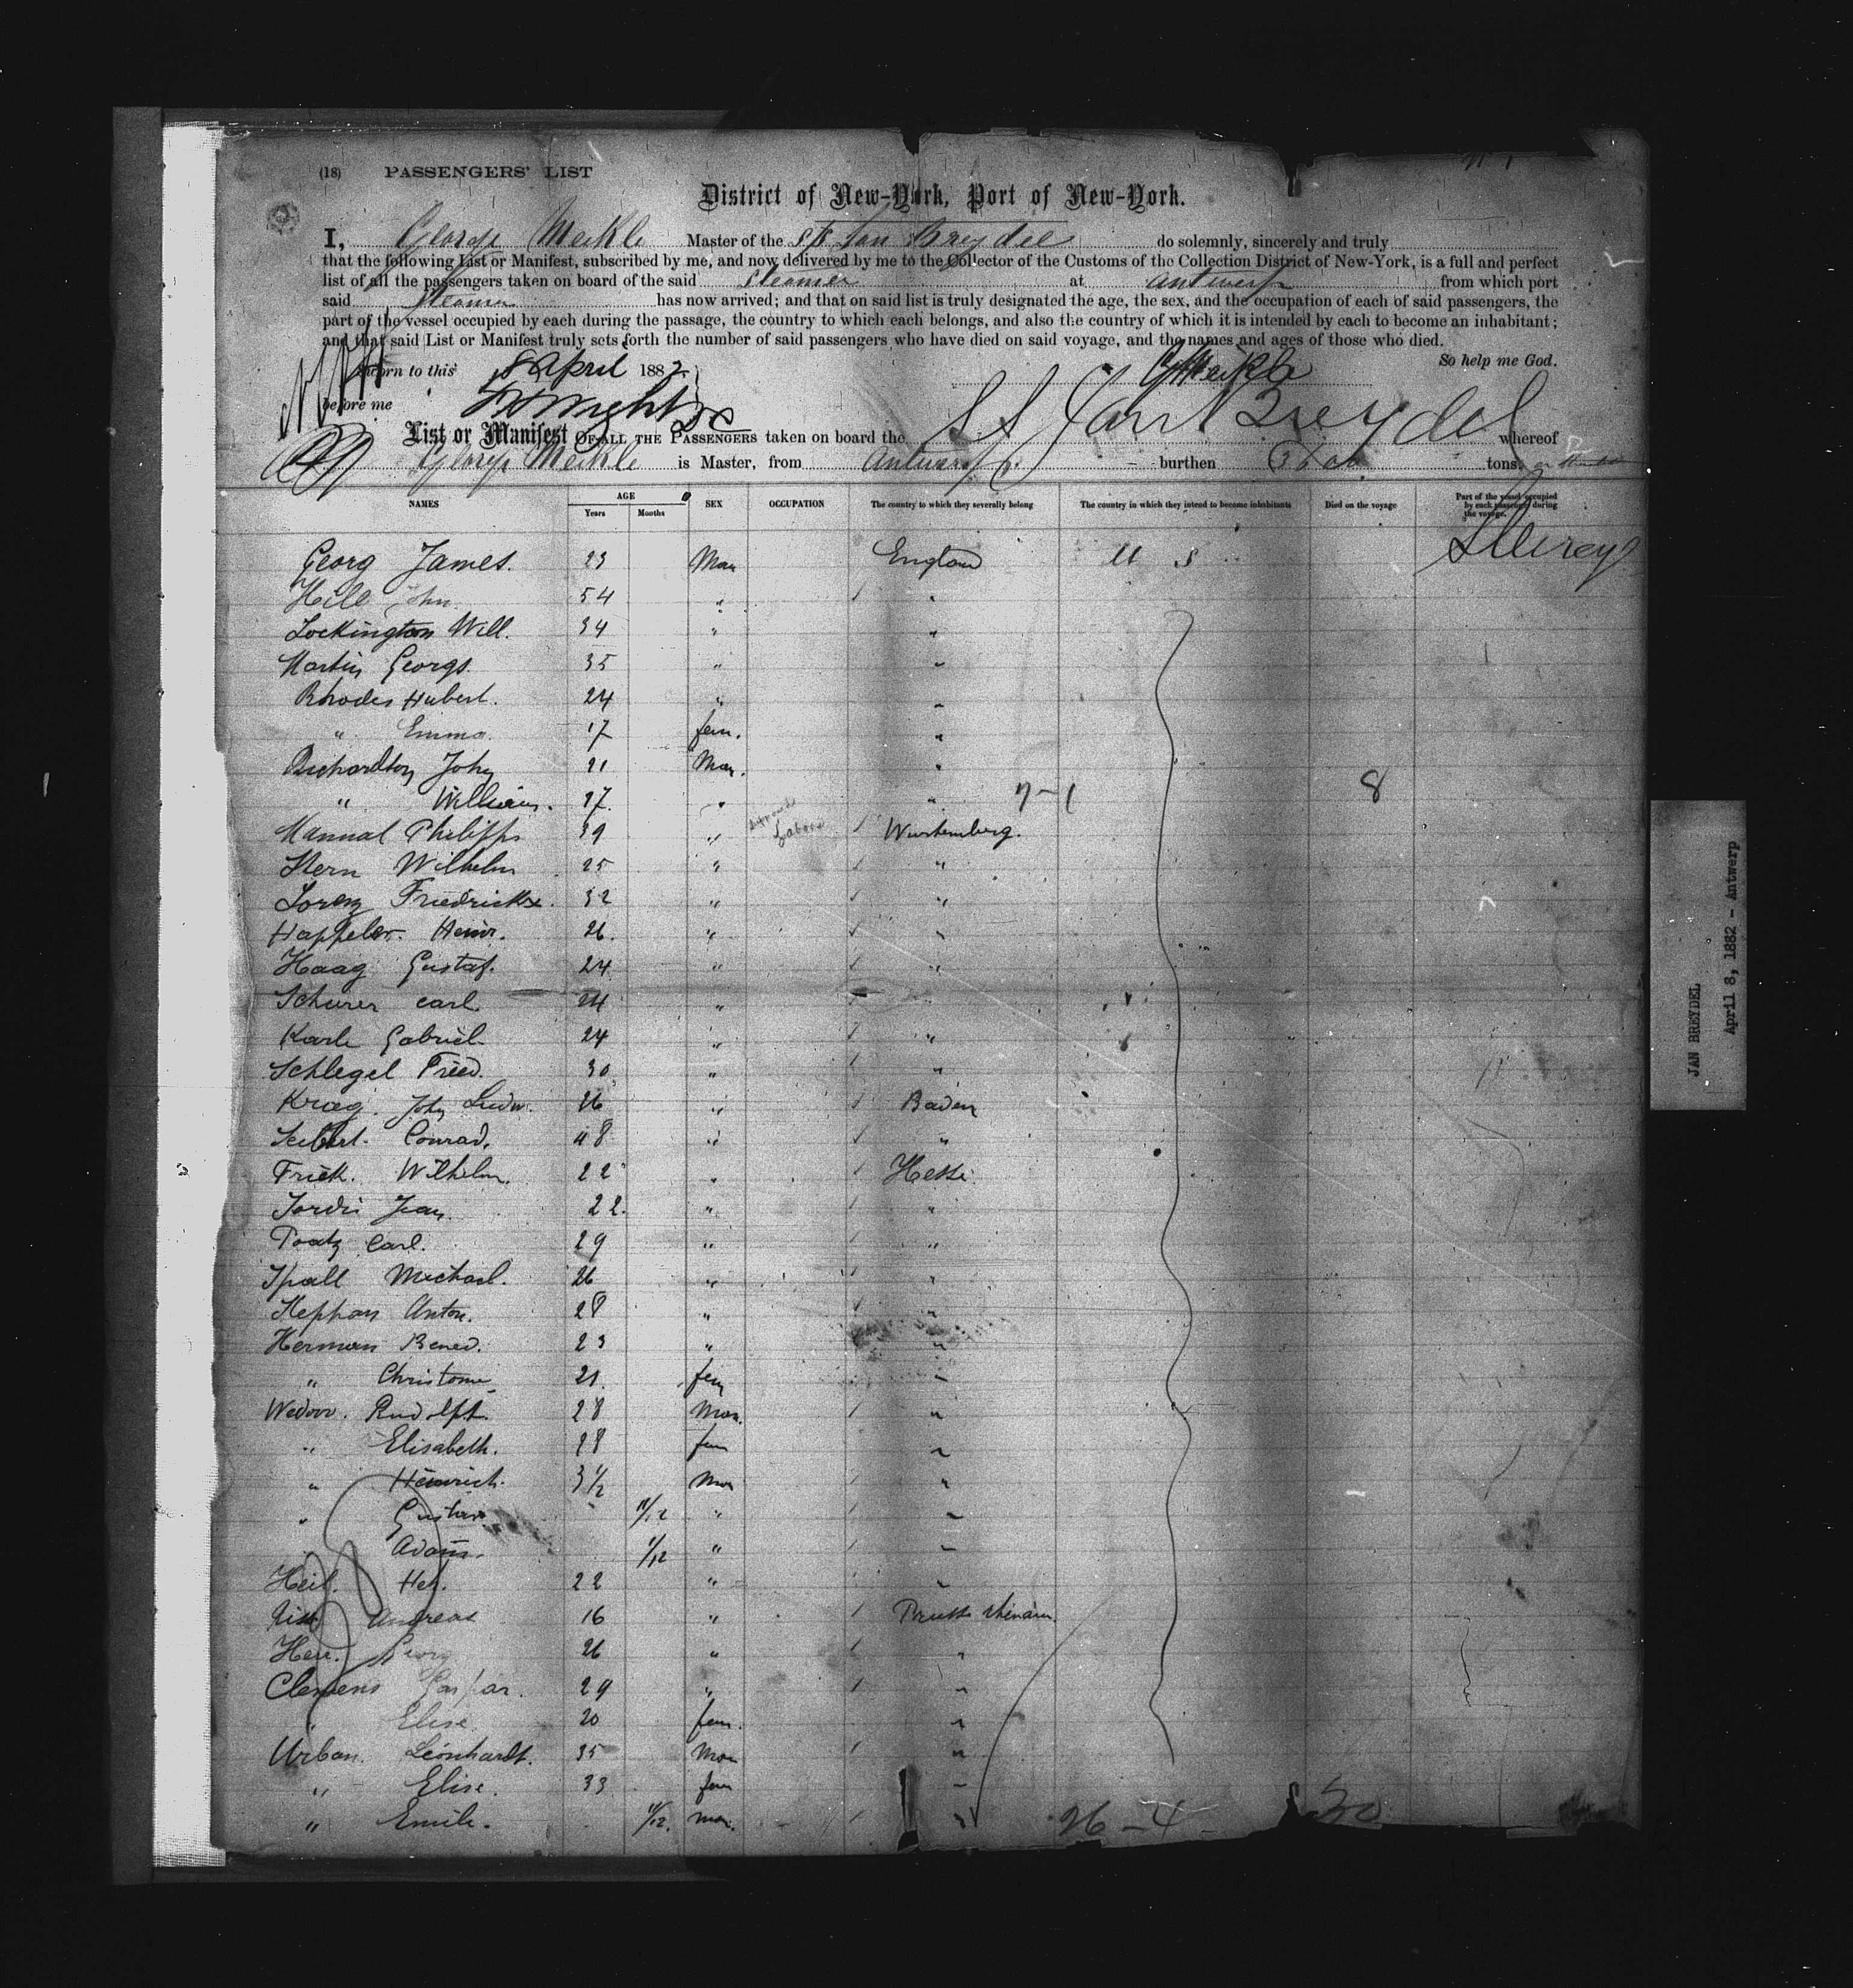 (18) PASSENGERS' LIST
District of New-York, Port of New-York.
I, George Meikle Master of the SS Jan Breydel do solemnly, sincerely and truly
that the following List or Manifest, subscribed by me, and now delivered by me to the Collector of the Customs of the Collection District of New-York, is a full and perfect
list of all the passengers taken on board of the said Steamer at Antwerp from which port
said Steamer has now arrived; and that on said list is truly designated the age, the sex, and the occupation of each of said passengers, the
part of the vessel occupied by each during the passage, the country to which each belongs, and also the country of which it is intended by each to become an inhabitant;
and that said List or Manifest truly sets forth the number of said passengers who have died on said voyage, and the names and ages of those who died.
So help me God.
Sworn to this 8 April 1882 GMeikle
before me
List or Manifest OF ALL THE PASSENGERS taken on board the SS Jan Breydel whereof
George Meikle is Master, from Antwerp burthen tons.
NAMES AGE Years Months SEX OCCUPATION The country to which they severally belong The country in which they intend to become inhabitants Died on the voyage Part of the vessel occupied by each passenger during the voyage.
Georg James. 23 Man England U S
Hill John 54 "
Lockington Will. 34 " "
Martin Georgs. 35 " "
Rhodes Hubert. 24 " "
" Emma. 17 fem. "
Richardson John 21 Man. "
" William. 17. " " 7-1 8
Mannal Philipps 39 " Labor Wurtemberg.
Stern Wilhelm 25 " "
Lorenz Friedrick 32 " "
Happeler Heinr. 26. " "
Haag Gustaf. 24 " "
Schurer Carl 24 " "
Karle Gabriel 24 " "
Schlegel Fried. 30 " "
Krieg. John Ludw. 26 " Baden
Seibert. Conrad. 48 " "
Frick. Wilhelm. 22 " Hesse
Jordis Jean. 22. " "
Paatz Carl. 29 " "
Spall Michael. 26 " "
Stephan Anton. 28 " "
Herman Bened. 23 " "
" 21. fem "
Rudolph. 28 Man. "
" Elisabeth. 28 fem "
" Heinrich. 3 1/2 Man "
" Gustav 11/12 " "
Adam. 1/12 " "
Heil. Hch. 22 " "
Andreas 16 " Pruss
Georg 26 " "
Clemens Caspar. 29 " "
" Elise. 20 fem. "
Urban. Leonhardt. 35 Man "
" Elise. 33 fem "
" Emile. 11/12. man. " 26-4 30
JAN BREYDEL
April 8, 1882 - Antwerp